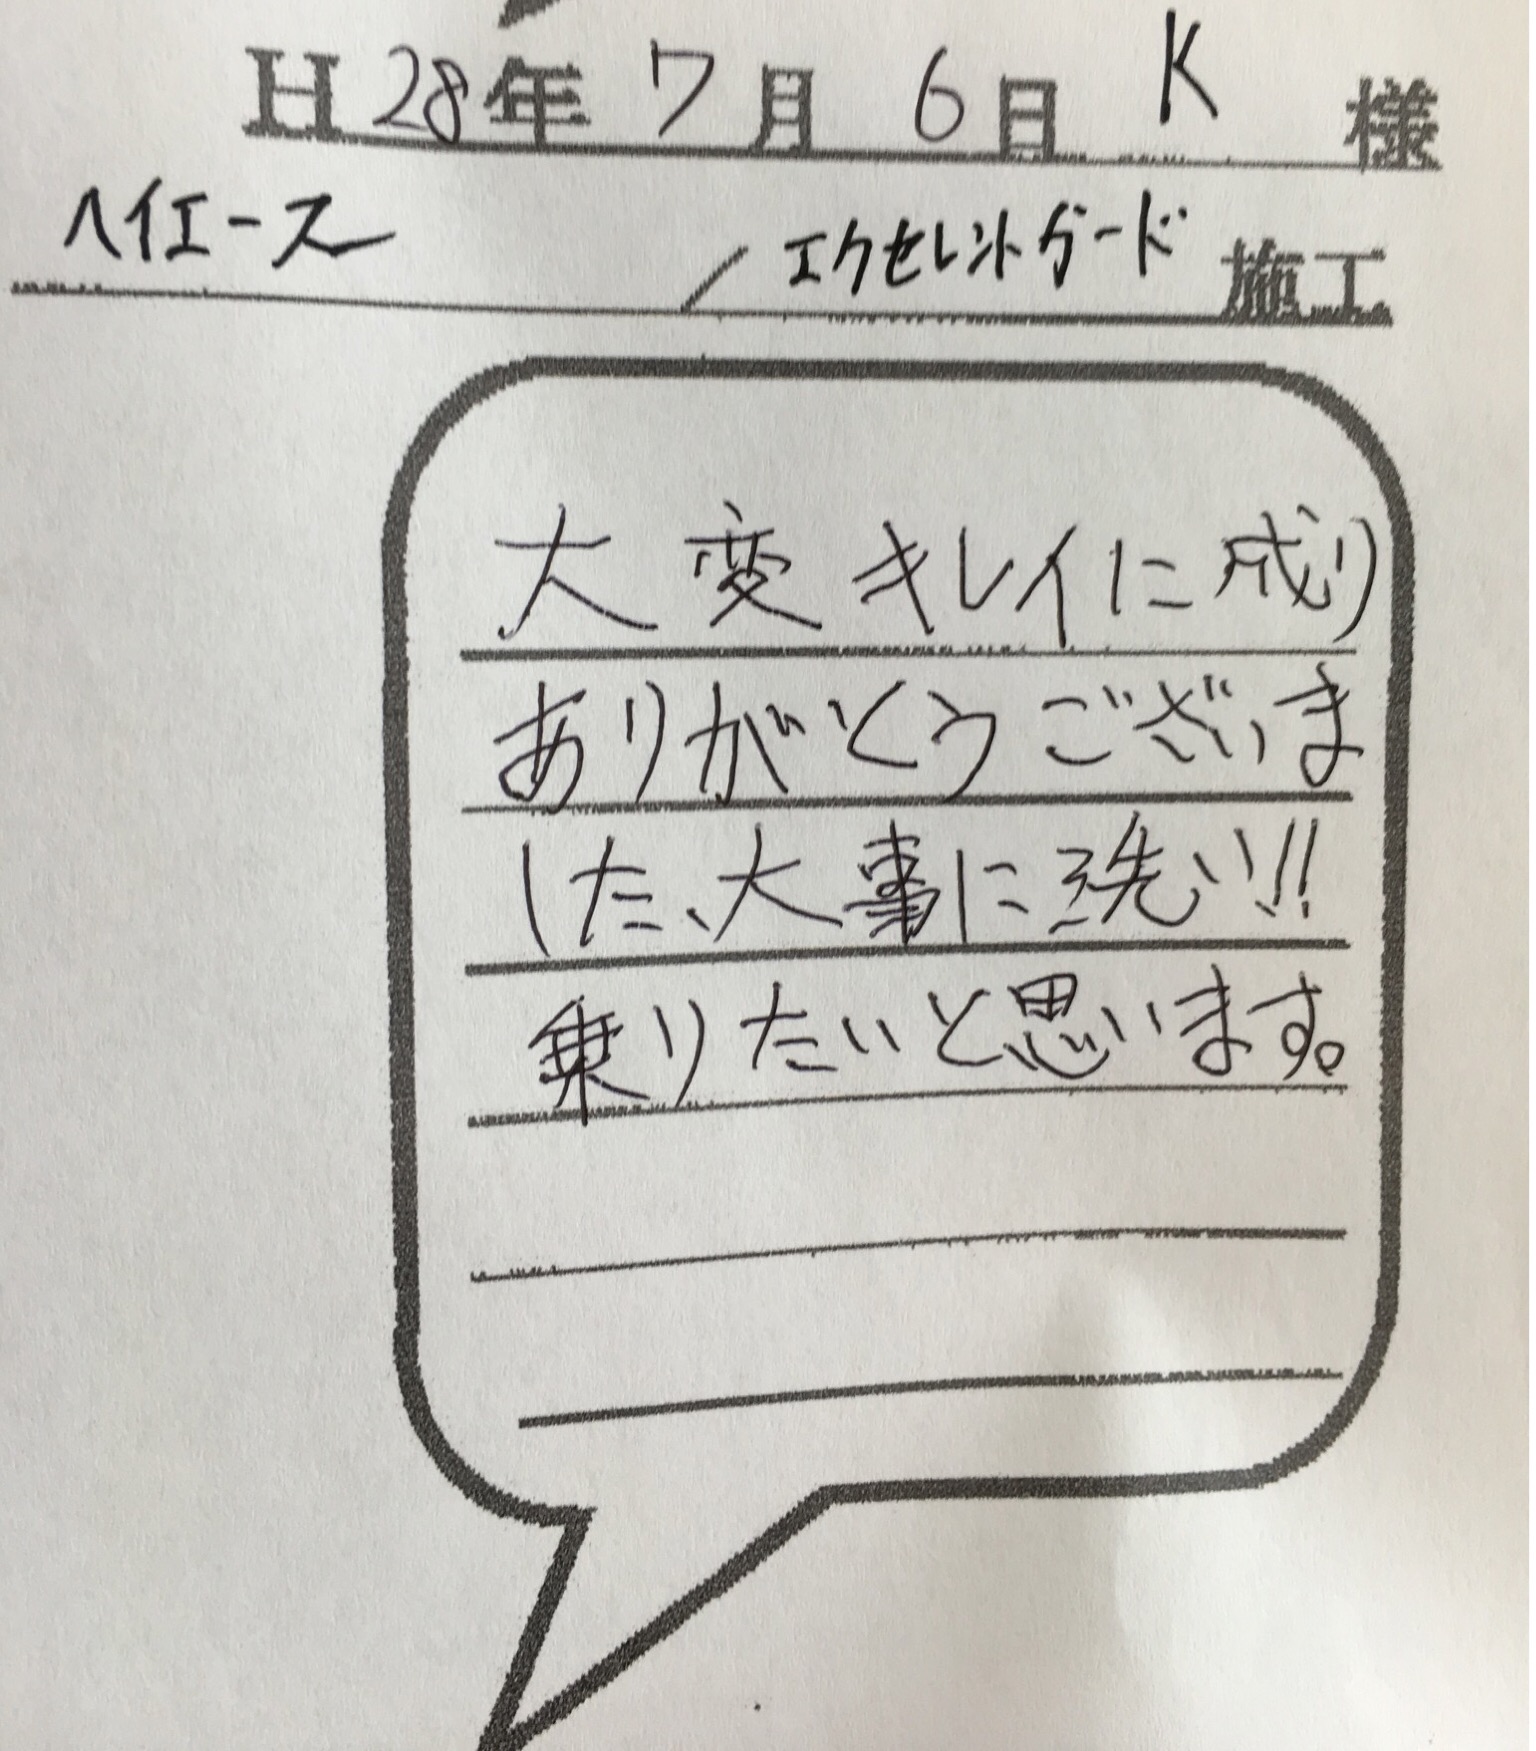 H28年7月6日 K 様
ハイエース / エクセレントガード 施工
大変キレイに成り
ありがとうございま
した、大事に洗い!!
乗りたいと思います。